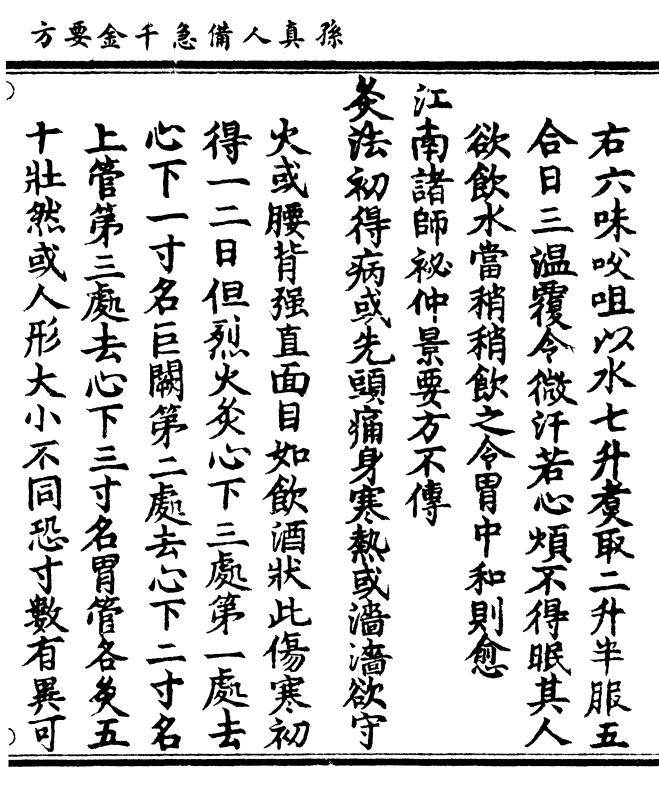 孫真人備急千金要方
右六味㕮咀以水七升煑取二升半服五
合日三温覆令微汗若心煩不得眠其人
欲飲水當稍稍飲之令胃中和則愈
江南諸師祕仲景要方不傳
灸法初得病或先頭痛身寒熱或濇濇欲守
火或腰背强直面目如飲酒狀此傷寒初
得一二日但烈火灸心下三處第一處去
心下一寸名巨闕第二處去心下二寸名
上管第三處去心下三寸名胃管各灸五
十壯然或人形大小不同恐寸數有異可